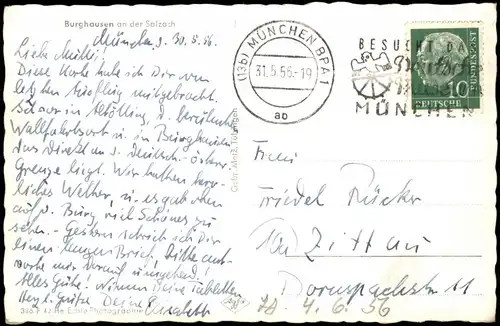 Burghausen an der Salzach
München, d. 30.5.56.
Liebe Mutti!
Diese Karte habe ich Dir von
letzten Ausflug mitgebracht.
Wir waren in Altötting, d. berühmten
Wallfahrtsort u. in Burghausen,
das direkt an d. Deutsch-Österr.
Grenze liegt. Wir hatten herr-
liches Wetter, u. es gab oben
auf d. Burg viel Schönes zu
sehen. - Gestern schrieb ich Dir
einen langen Brief. Bitte ant-
worte mir darauf umgehend!
Alles Gute. Nimm Deine Tabletten
Herzl. Grüße Deine Elisabeth
Gebr. Metz, Tübingen
Echte Photographie
(13b) MÜNCHEN BPA 1
31.5.56.-19
ab
BESUCHT DAS
MÜNCHEN
DEUTSCHE
BUNDESPOST
10
Frau
Friedel Rücker
(10) Zittau
Dornspachstr. 11
4.6.56